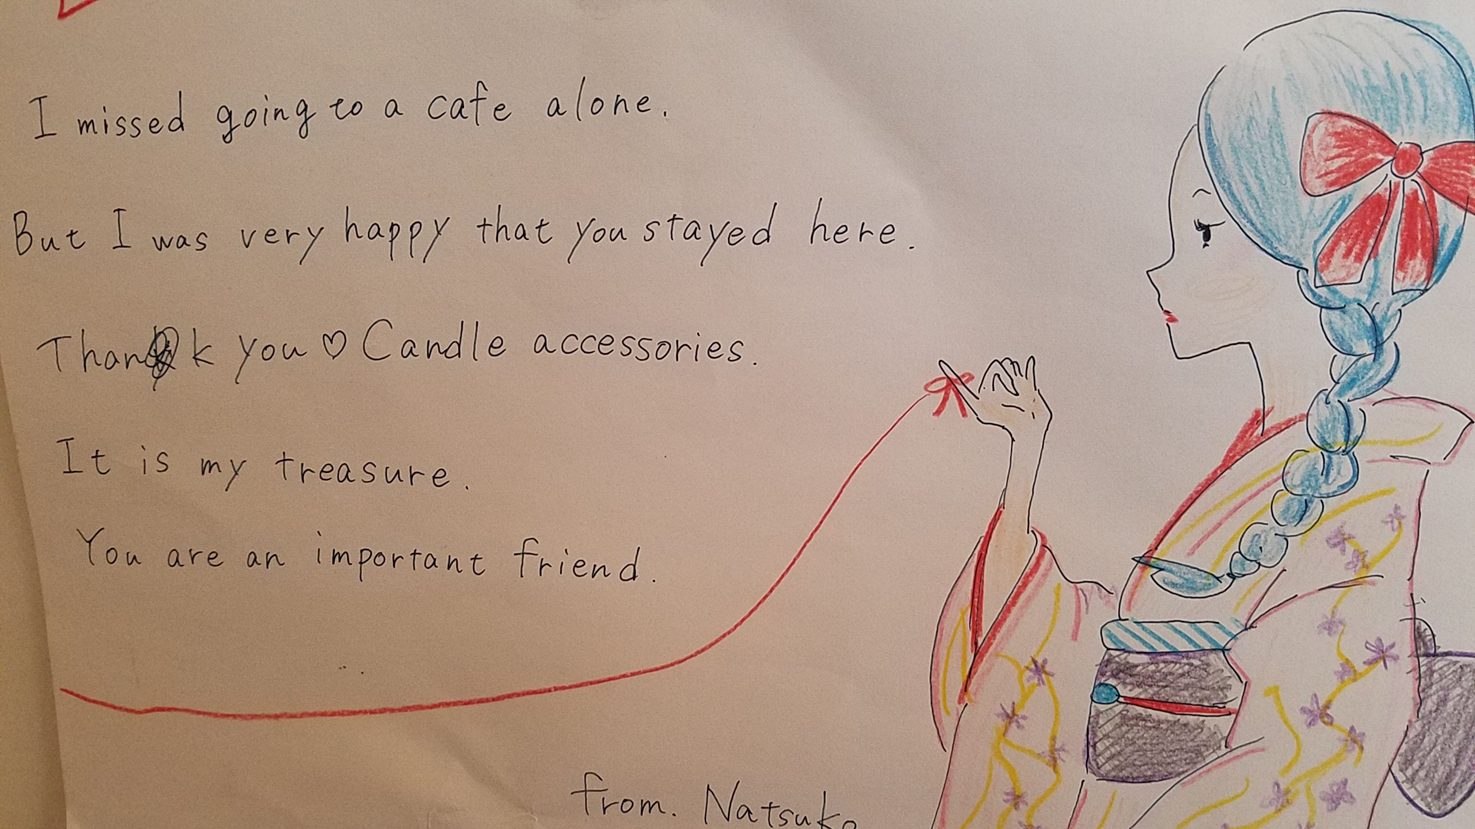 I missed going to a cafe alone.
But I was very happy that you stayed here.
Thank you ♡ Candle accessories.
It is my treasure.
You are an important friend.
from. Natsuko